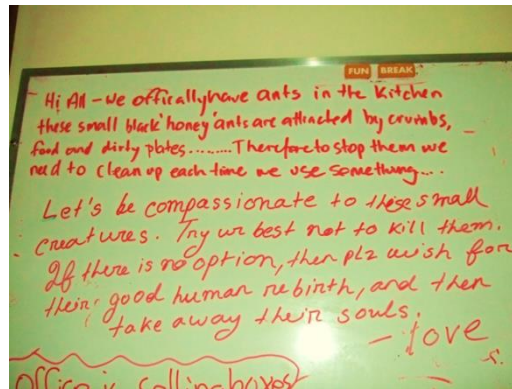 FUN BREAK
Hi All - We officallyhave ants in the kitchen
these small black 'honey' ants are attracted by crumbs,
food and dirty plates......... Therefore to stop them we
need to clean up each time we use something...
Let's be compassionate to these small
creatures. Try ur best not to kill them.
If there is no option, then plz wish for
their good human rebirth, and then
take away their souls.
- love
office is selling boxes